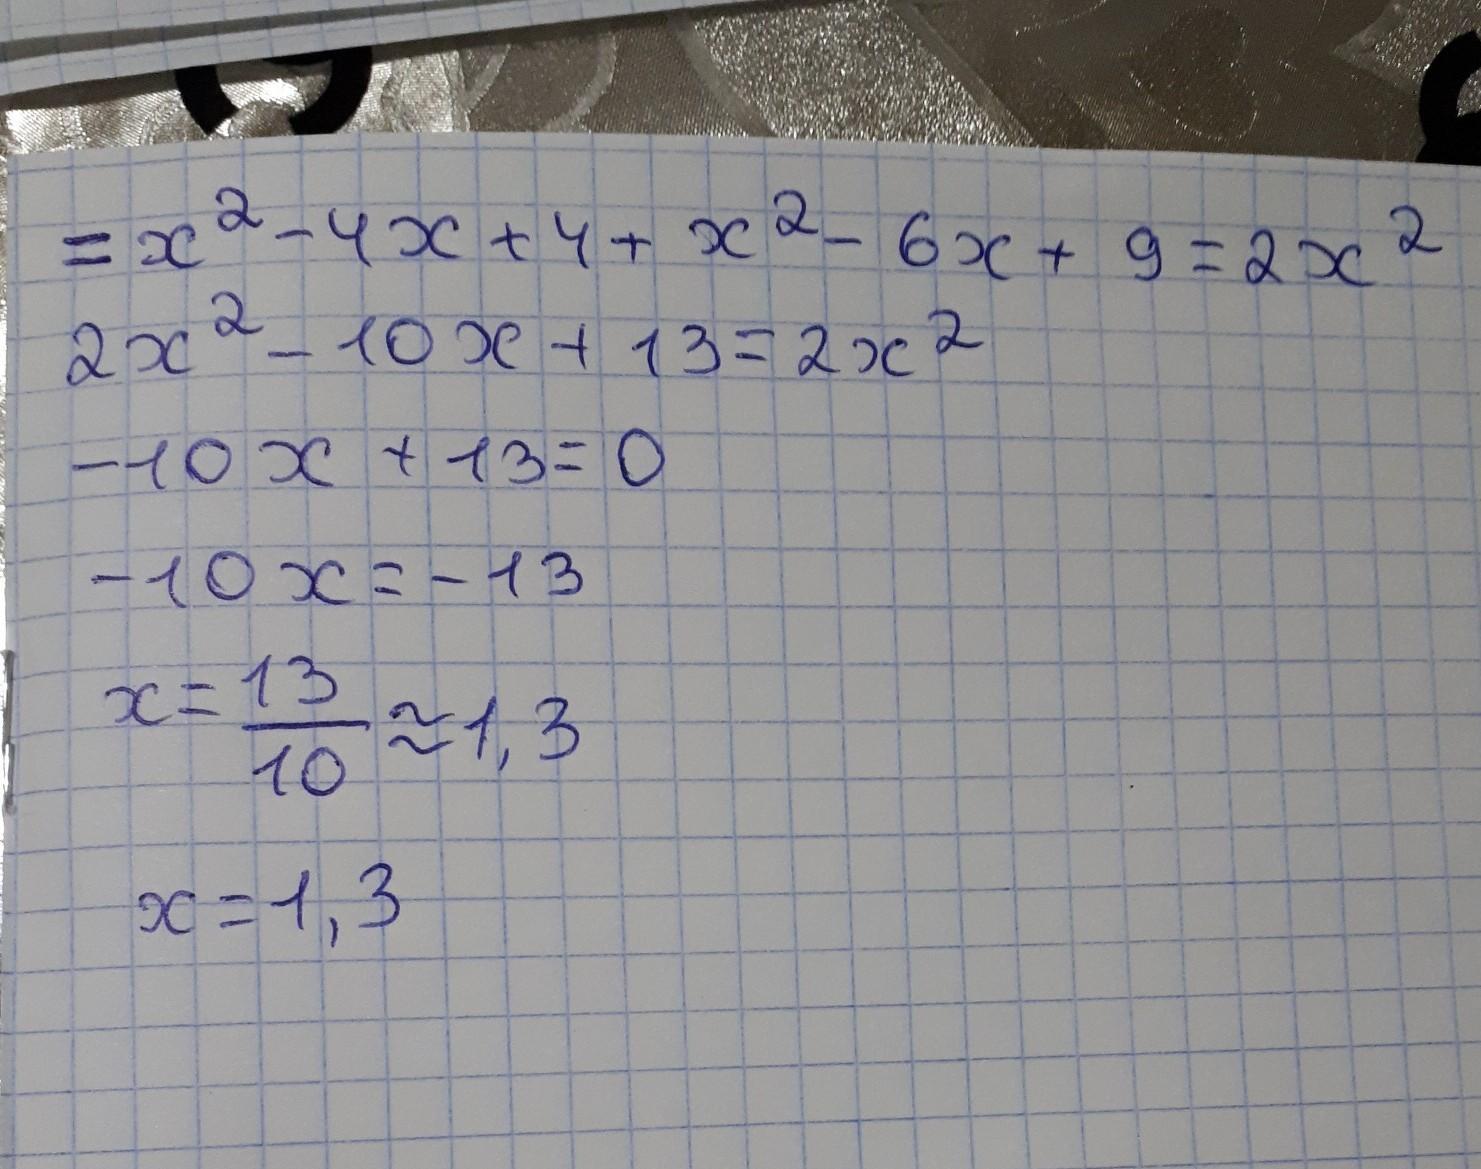 = x² - 4x + 4 + x² - 6x + 9 = 2x²
2x² - 10x + 13 = 2x²
-10x + 13 = 0
-10x = -13
x = 13/10 ≈ 1,3
x = 1,3